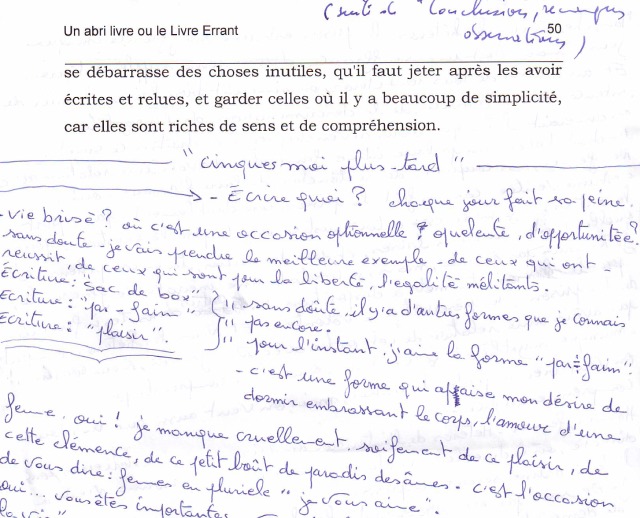 (suite de "Conclusion, remarques
Un abri livre ou le Livre Errant
observations)
50
se débarrasse des choses inutiles, qu'il faut jeter après les avoir
écrites et relues, et garder celles où il y a beaucoup de simplicité,
car elles sont riches de sens et de compréhension.
"cinques moi plus-tard"
- Écrire quoi? chaque jour fait sa peine.
- vie brisé? où c'est une occasion optionnelle? d'opportunitée?
sans doute - je vais prendre le meilleure exemple - de ceux qui ont -
reussit, de ceux qui sont pour la liberté, l'egalité mélitants.
Ecriture: "sac de box"
Ecriture: "par-faim" sans doûte, il y a d'autres formes que je connais
Ecriture: "plaisir". pas encore.
pour l'instant, j'aime la forme "par-faim":
- c'est une forme qui apaise mon désire de
dormir embrassant le corps, l'amour d'une
femme, oui! je manque cruellement, soifement de ce plaisir, de
cette clémence, de ce petit boût de paradis des âmes. c'est l'occasion
de vous dire: femmes en pluriele "je vous aime".
oui... vous êtes importantes
la vie"